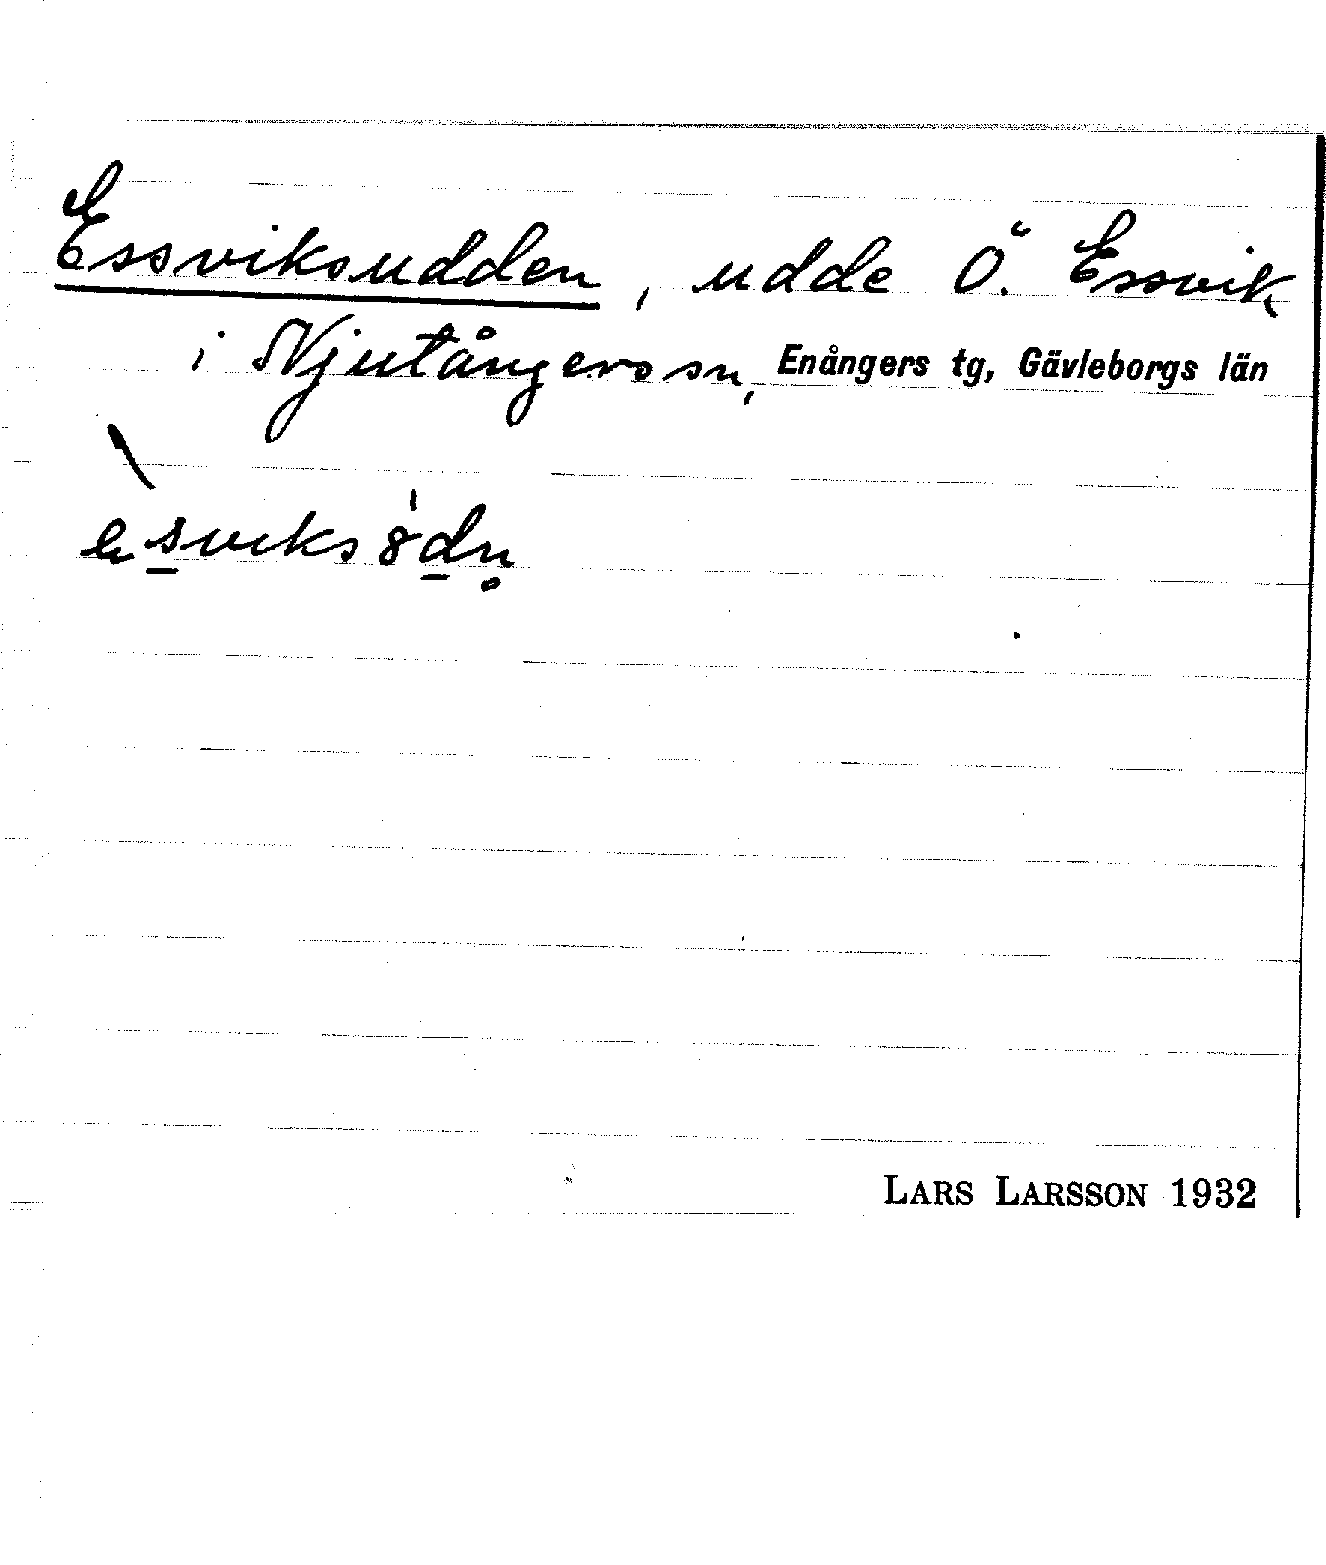 Essviksudden, udde Ö. Essvik
i Njutångers sn, Enångers tg, Gävleborgs län
LARS LARSSON 1932